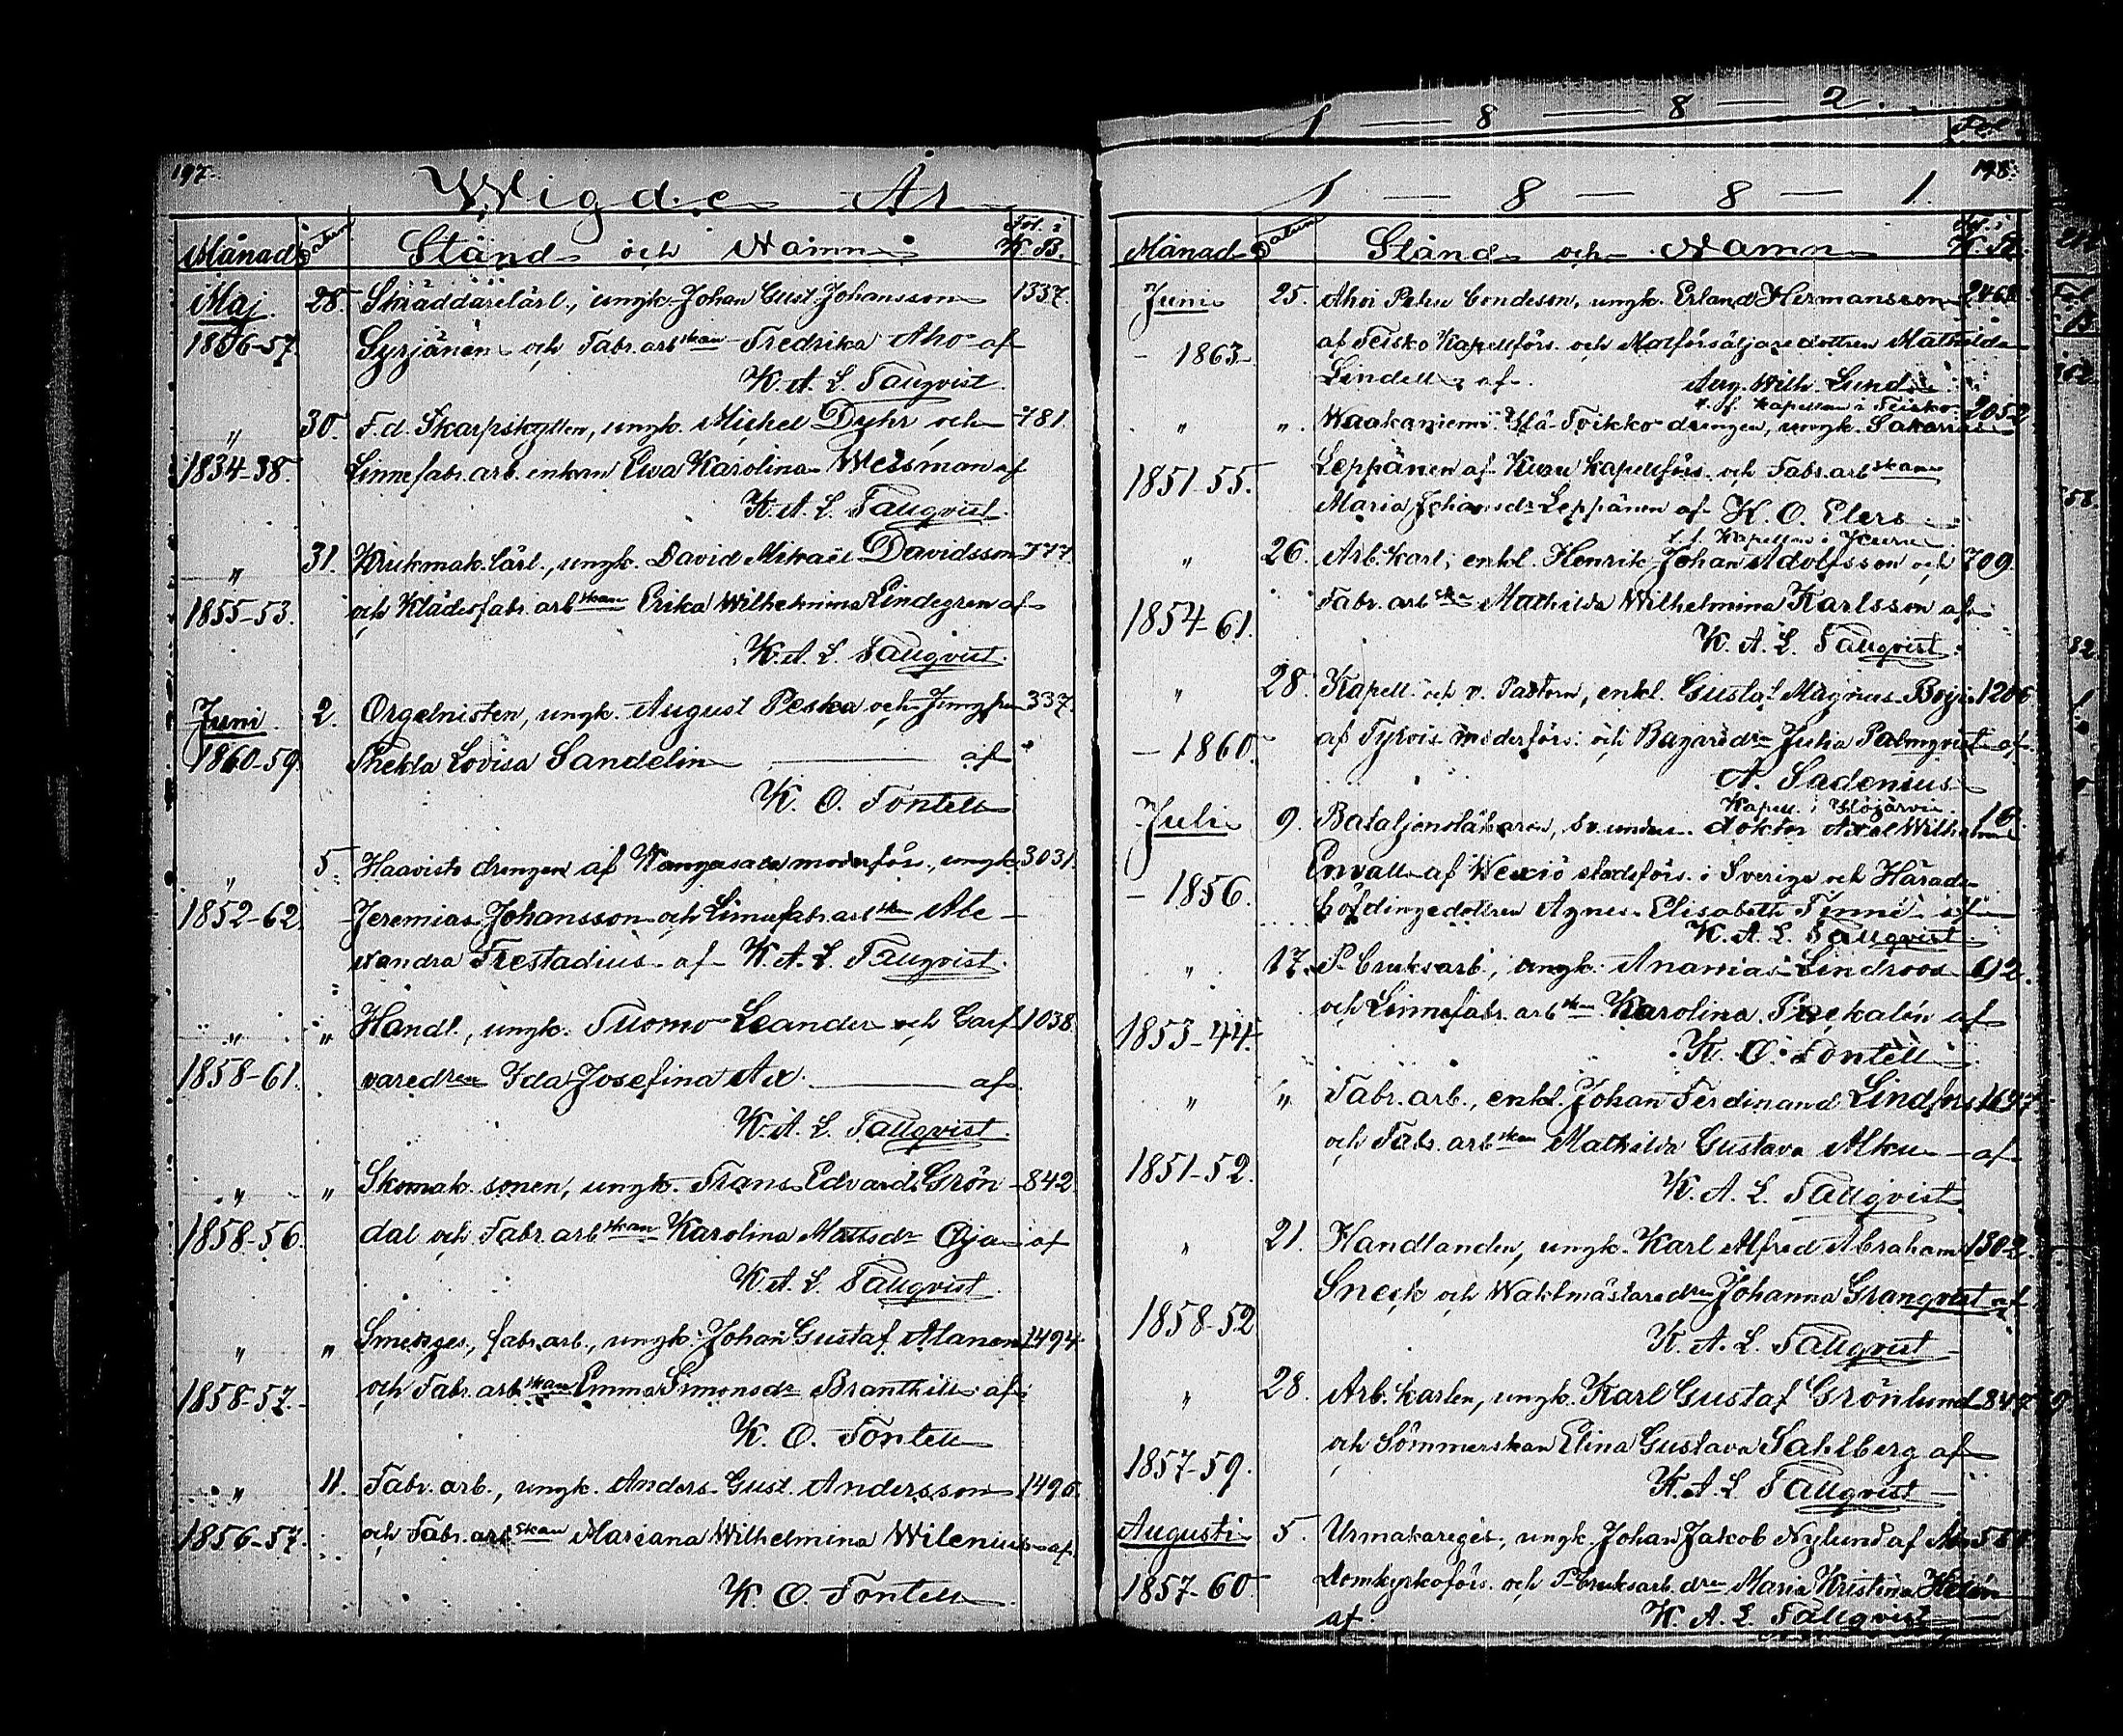 197.
Wigde År
Månad Datum Stånd och Namn Fol. i K. B.
Maj. 28. Skräddarelärl., ungk. Johan Gust. Johansson 1337.
1856-57. Syrjänen och Fabr.arbskan Fredrika Aho af
K. A. L. Tallqvist.
" 30. F.d. Skarpskytten, ungk. Michel Dyhr och 781.
1834-38. Linnefabr.arb.enkan Ewa Karolina Weisman af
K. A. L. Tallqvist.
" 31. Krukmak.lärl., ungk. David Mikael Davidsson 777.
1855-53. och Klädesfabr.arbskan Erika Wilhelmina Lindegren af
K. A. L. Tallqvist.
Juni. 2. Orgelnisten, ungk. August Peska och Jungfru 337.
1860-59. Thekla Lovisa Sandelin af
K. O. Fontell
" 5. Haavisto drengen af Kangasala moderförs., ungk. 3031.
1852-62. Jeremias Johansson och Linnefabr.arbskan Ale-
xandra Frestadius af K. A. L. Tallqvist.
" " Handl., ungk. Tuomo Leander och Garf- 1038.
1858-61. varedren Ida Josefina Ax af
K. A. L. Tallqvist.
" " Skomak.sonen, ungk. Frans Edvard Grön- 842.
1858-56. dal och Fabr.arbskan Karolina Mattsdr Oja af
K. A. L. Tallqvist.
" " Smedsges., fabr.arb., ungk. Johan Gustaf Alanen 1494.
1858-57. och Fabr.arbskan Emma Simonsdr Branthill af
K. O. Fontell
" 11. Fabr.arb., ungk. Anders Gust. Andersson 1496.
1856-57. och Fabr.arbskan Mariana Wilhelmina Wilenius af
K. O. Fontell
1 — 8 — 8 — 2.
Fol.
198.
1 — 8 — 8 — 1.
Månad Datum Stånd och Namn Fol. i K. B.
Juni 25. Ahoi Peltu bondeson, ungk. Erland Hermansson 2468.
- 1863. af Teisko Kapellförs. och Matförsäljaredottren Mathilda
Lindell af Aug. Wilh. Lund
t. f. Kapellan i Teisko.
" " Waakaniemi Ylä-Toikko drengen, ungk. Sakarias 2052.
1851-55. Leppänen af Kuru kapellförs. och Fabr.arbskan
Maria Johansdr Leppänen af K. O. Elers
t. f. Kapellan i Kuru.
" 26. Arb.karl, enkl. Henrik Johan Adolfsson och 709.
1854-61. Fabr.arbska Mathilda Wilhelmina Karlsson af
K. A. L. Tallqvist.
" 28. Kapell. och v. Pastorn, enkl. Gustaf Magnus Boije 1206.
- 1860. af Tyrvis moderförs. och Bagaredr Julia Palmqvist af
A. Sadenius
Kapell. i Ylöjärvi.
Juli 9. Bataljonsläkaren, doktor Axel Wilhelm 16.
- 1856. Envall af Wexiö stadsförs. i Sverige och Härads-
höfdingedottren Agnes Elisabeth Finne af
K. A. L. Tallqvist.
" 17. P-bruksarb., ungk. Ananias Lindroos 612.
1853-44. och Linnefabr.arbskan Karolina Prekalén af
K. O. Fontell
" " Fabr.arb., enkl. Johan Ferdinand Lindfors 1697.
1851-52. och Fabr.arbskan Mathilda Gustava Alku af
K. A. L. Tallqvist
" 21. Handlanden, ungk. Karl Alfred Abraham 1302.
1858-52 Sneck och Waktmästaredren Johanna Granqvist af
K. A. L. Tallqvist
" 28. Arb.karlen, ungk. Karl Gustaf Grönlund 849.
1857-59. och Sömmerskan Elina Gustava Sahlberg af
K. A. L. Tallqvist
Augusti 5. Urmakareges., ungk. Johan Jakob Nylund af Åbo
1857-60 domkyrkoförs. och P-bruksarb.dren Maria Kristina Helén
af K. A. L. Tallqvist